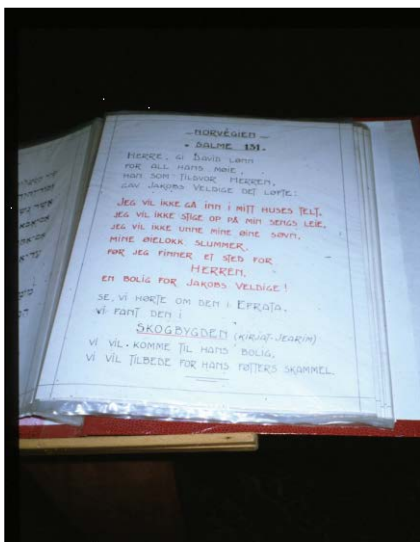 NORVÉGIEN
SALME 131.
HERRE, GI DAVID LØNN
FOR ALL HANS MØIE,
HAN SOM TILSVOR HERREN,
GAV JAKOBS VELDIGE DET LØFTE:
JEG VIL IKKE GÅ INN I MITT HUSES TELT,
JEG VIL IKKE STIGE OP PÅ MIN SENGS LEIE,
JEG VIL IKKE UNNE MINE ØINE SØVN,
MINE ØIELOKK SLUMMER,
FØR JEG FINNER ET STED FOR
HERREN,
EN BOLIG FOR JAKOBS VELDIGE!
SE, VI HØRTE OM DEN I EFRATA,
VI FANT DEN I
SKOGBYGDEN (KIRJAT-JEARIM)
VI VIL KOMME TIL HANS BOLIG,
VI VIL TILBEDE FOR HANS FØTTERS SKAMMEL.